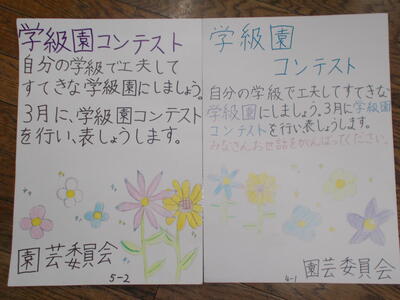 学級園コンテスト
自分の学級で工夫して
すてきな学級園にしましょう。
3月に、学級園コンテスト
を行い、表しょうします。
園芸委員会
5-2
学級園
コンテスト
自分の学級で工夫してすてきな
学級園にしましょう。3月に学級園
コンテストを行い表しょうします。
みなさんお世話をがんばってください。
園芸委員会
4-1